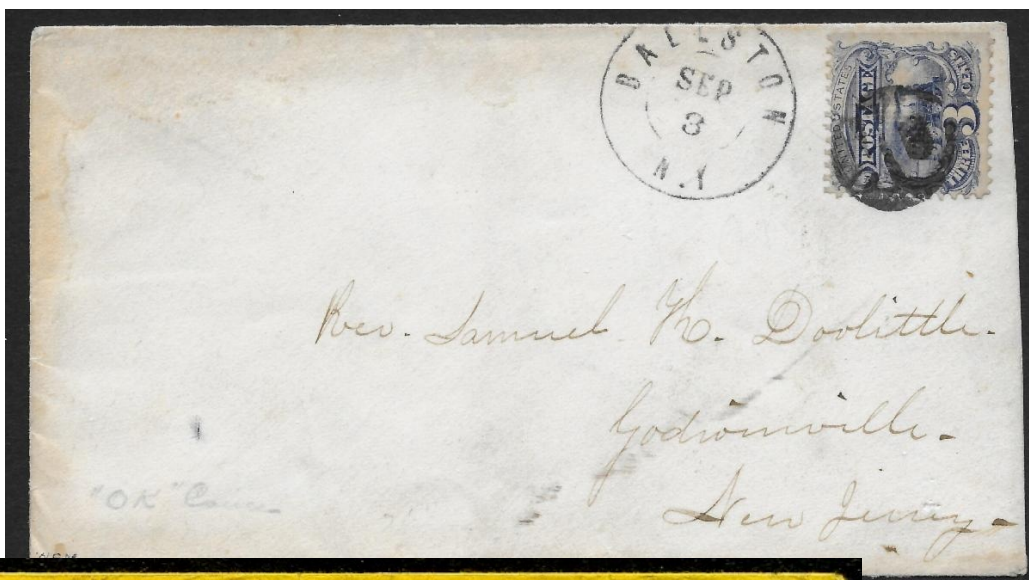 BALLSTON
SEP
3
N.Y
UNITED STATES
POSTAGE
3
Rev. Samuel H. Doolittle.
Godwinville.
New Jersey.
"OK" Cance